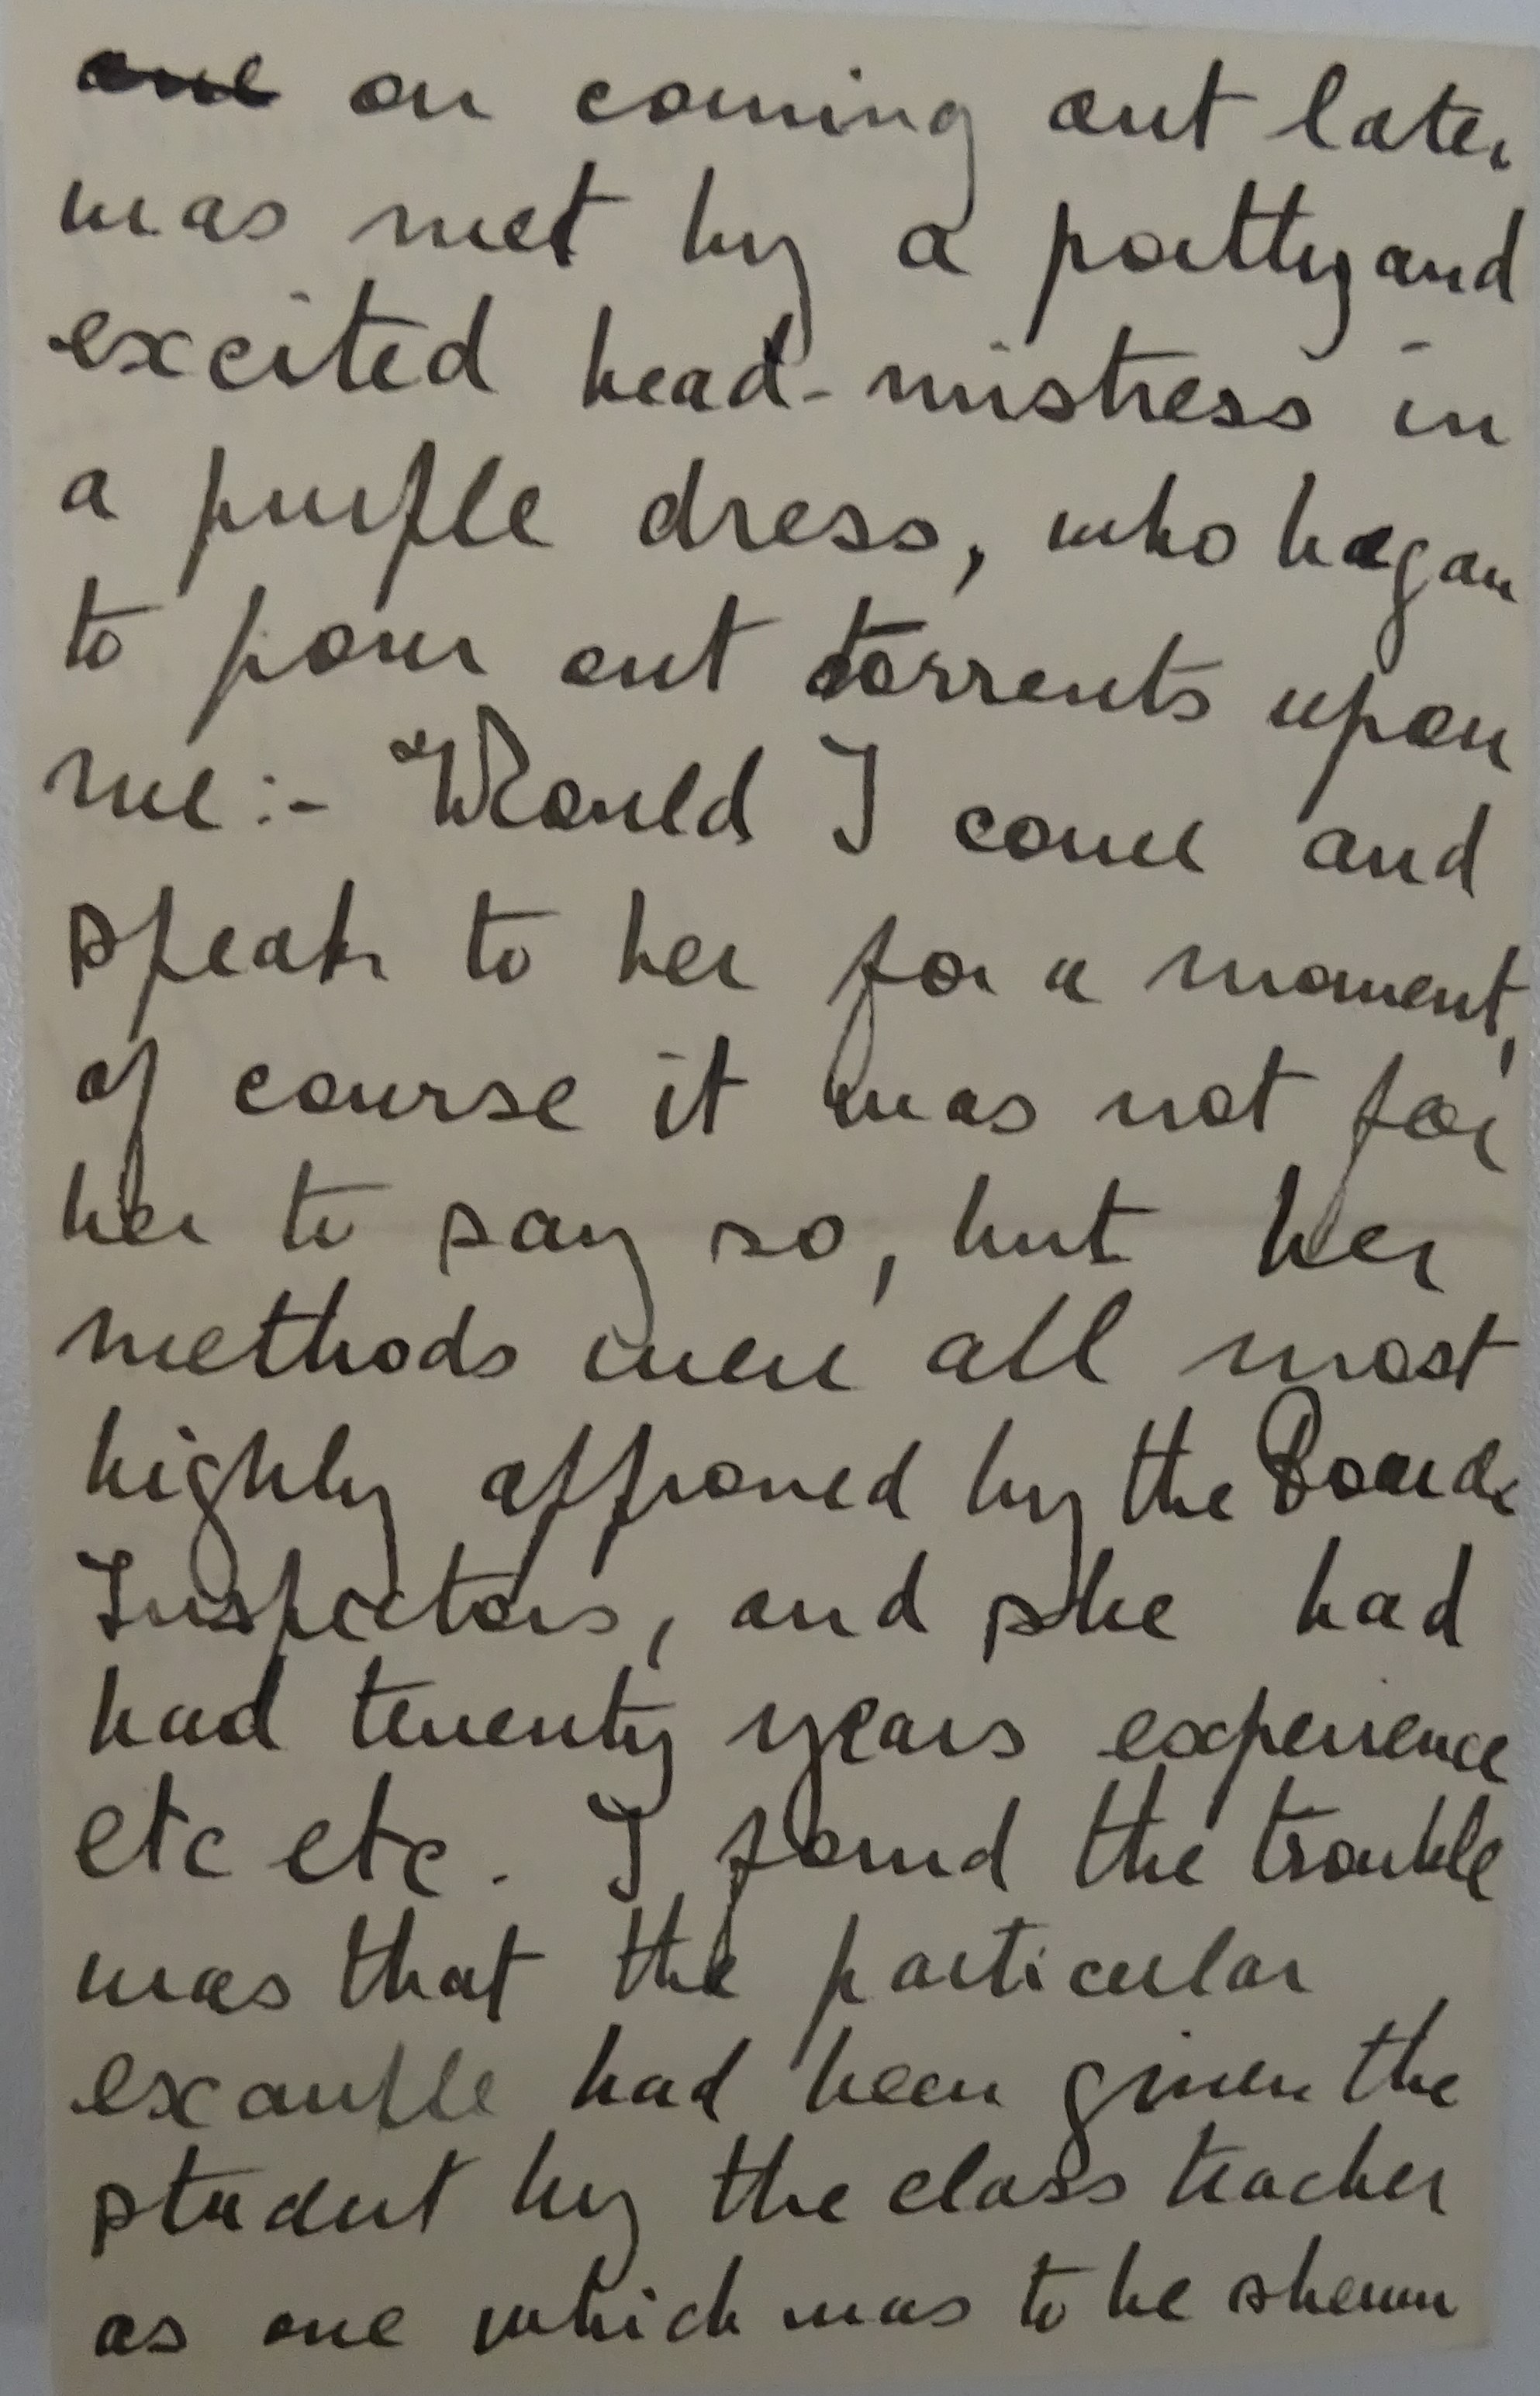 on coming out later
was met by a portly and
excited head-mistress in
a purple dress, who began
to pour out torrents upon
me:- Would I come and
speak to her for a moment,
of course it was not for
her to say so, but her
methods were all most
highly approved by the Boards
Inspectors, and she had
had twenty years experience
etc etc. I found the trouble
was that the particular
example had been given the
student by the class teacher
as one which was to be shewn